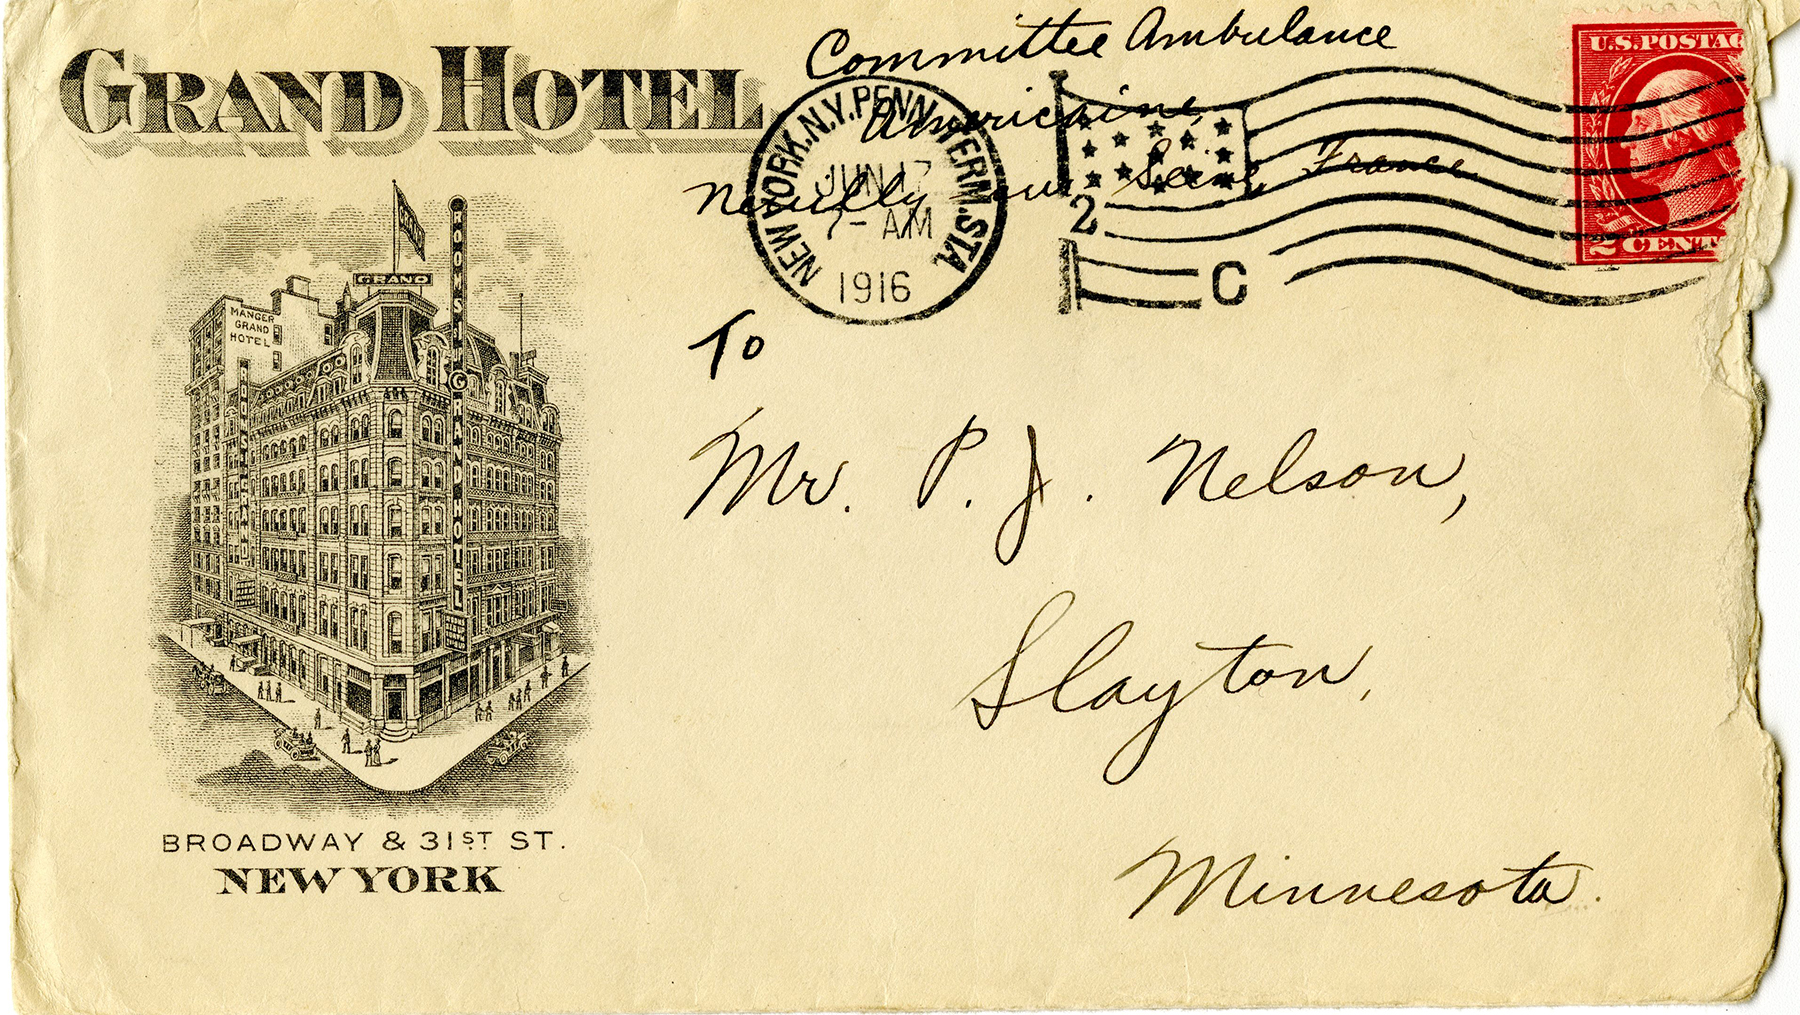 GRAND HOTEL
Committee Ambulance
Americaine,
Neuilly sur Seine, France.
NEW YORK, N.Y. PENN. TERM. STA.
JUN 17
7- AM
1916
2
C
U.S. POSTAG
2 CENTS
GRAND
ROOMS $1. GRAND HOTEL
MANGER
GRAND
HOTEL
To
Mr. P. J. Nelson,
Slayton,
Minnesota.
BROADWAY & 31ST ST.
NEW YORK